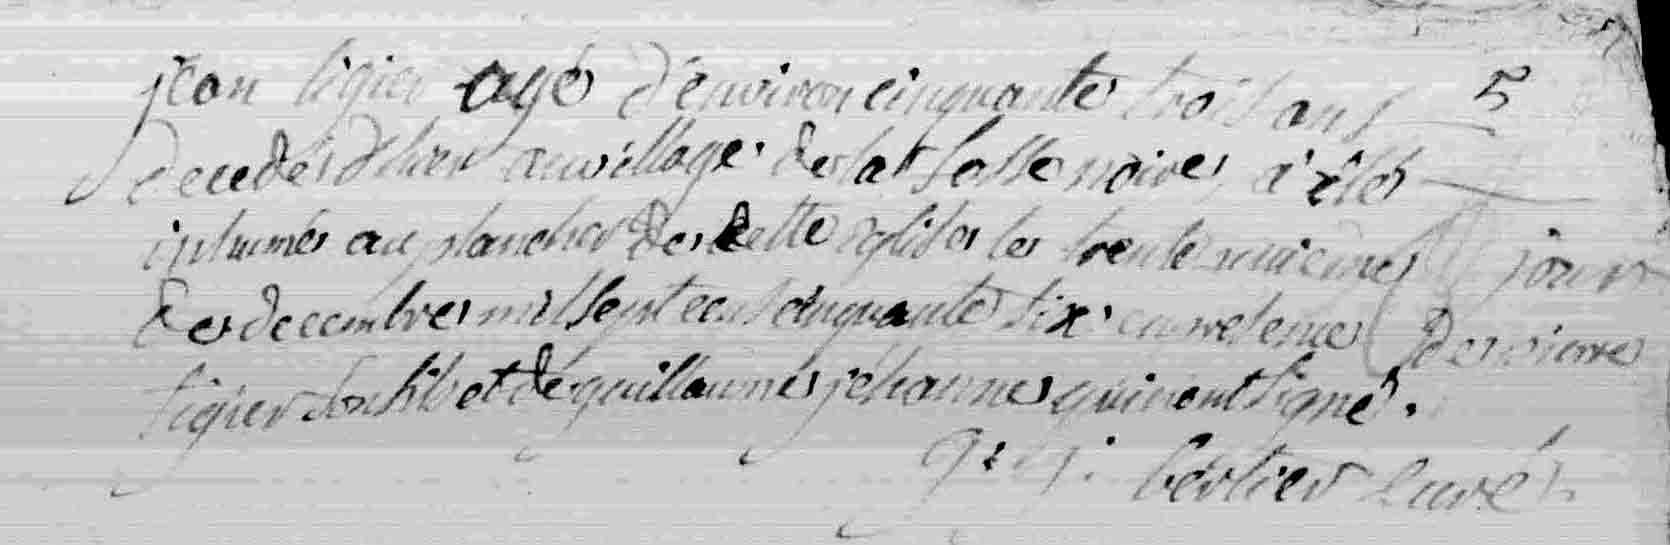 jean ligier agé d'environ cinquante trois ans 5
decedé d'hier au village de la fosse noire, a été
inhumé au plancher de cette eglise le trente unieme jour
de decembre mil sept cens cinquante six en presence de pierre
ligier son fils et de guillaume jehanne qui n'ont signé.
bertier curé